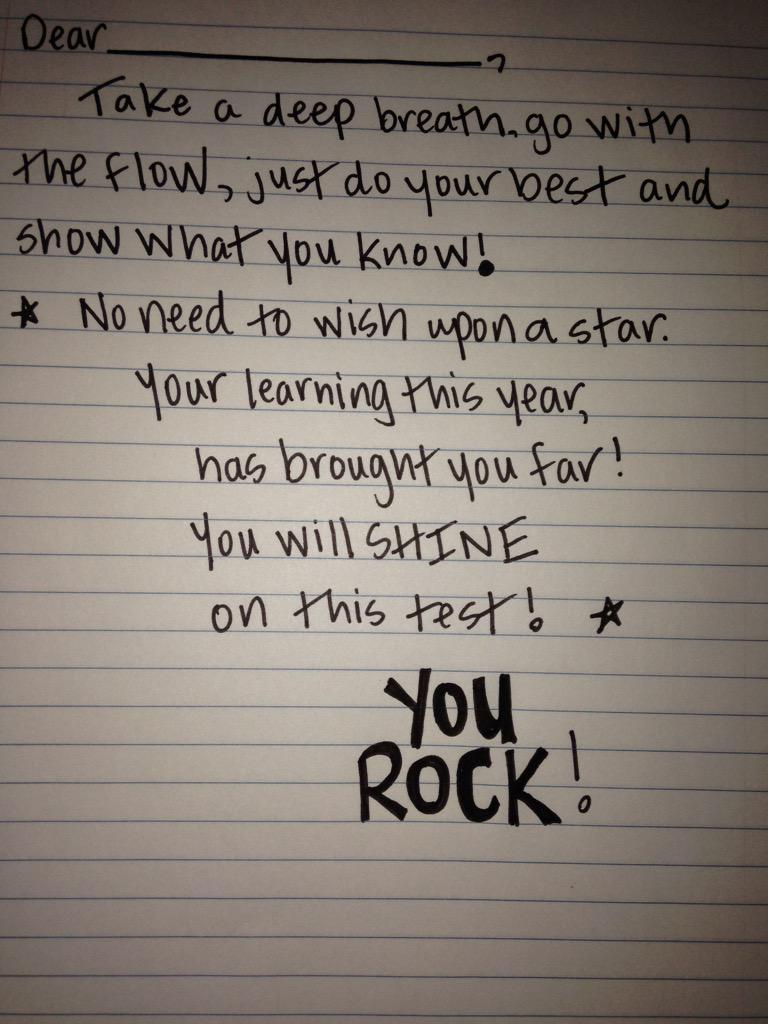 Dear____________________,
Take a deep breath, go with
the flow, just do your best and
show what you know!
★ No need to wish upon a star.
Your learning this year,
has brought you far!
You will SHINE
on this test! ★
YOU
ROCK!